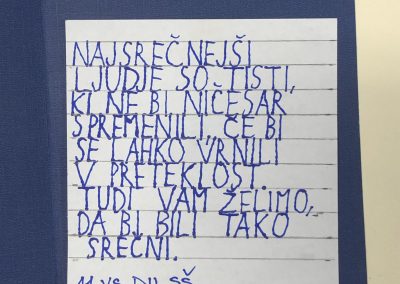 NAJSREČNEJŠI
LJUDJE SO TISTI,
KI NE BI NIČESAR
SPREMENILI, ČE BI
SE LAHKO VRNILI
V PRETEKLOST.
TUDI VAM ŽELIMO,
DA BI BILI TAKO
SREČNI.